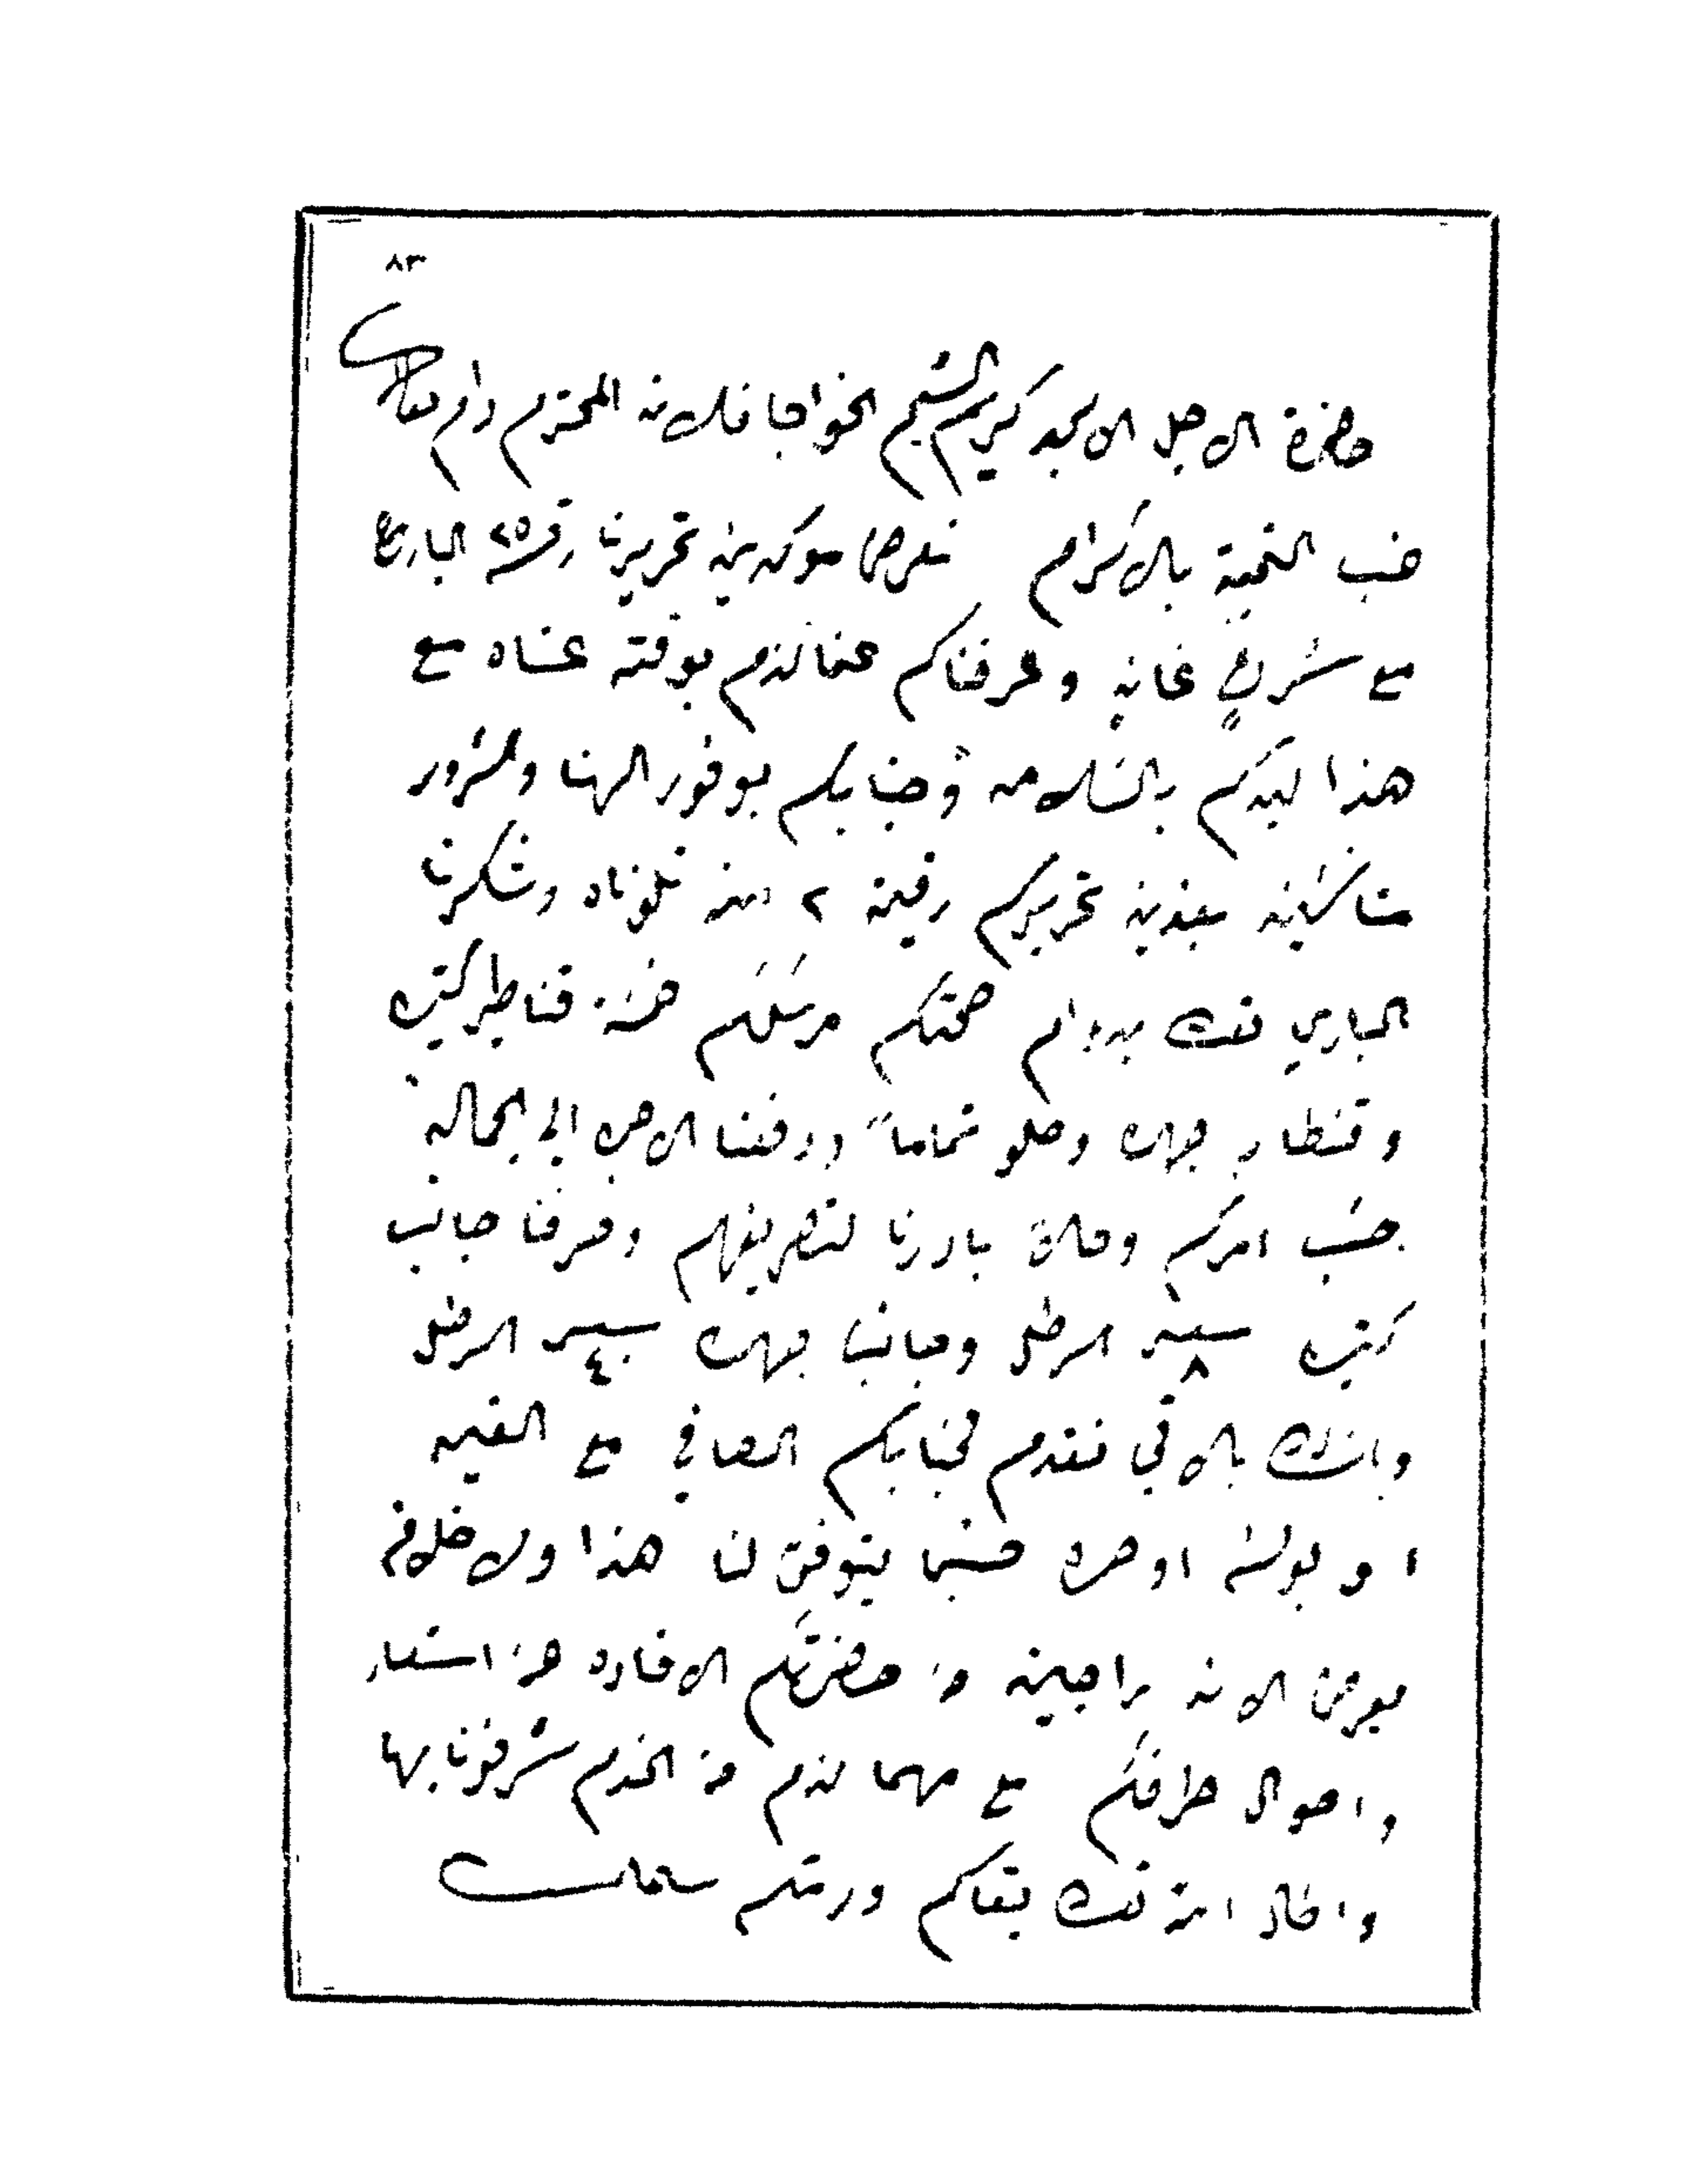 ٨٣
حضرة الاجل الامجد كريم الشيم الخواجا فلان المحترم دام بقاه
غب التحية بالاكرام نعرض مؤكدين تحريرنا رقم ٢٥ الجاري
مع شروع غانم وعرفناكم عما لزم بوقته عساه مع
هذا ليدكم بالسلامه وجنابكم بوفور الهنا والسرور
متأملين بعدين تحريركم رقيمة ٢ منه تلوناه وشكرنا
الباري تعالى بدوام صحتكم مرسلكم خمسة قناطير كتيره
وقنطار جهره وصلو تماماً ودفعنا الاجره الى الحماله
حسب امركم وحالا بادرنا لتصريفهم وصرفنا جانب
كتيره بسعر ٨ الرطل وجانب جهره بسعر ٤ الرطل
وانشالله بالاتي نقدم لجنابكم الصافي مع القيمه
او بولسه او صره حسبما يتوفق لنا هذا ولا خلافه
موجب الان راجين من حضرتكم الافاده عن اسعار
واحوال طرفكم مع مهما لزم من الخدم شرفونا بها
واطال الله تعالى بقاكم ودمتم سالمين